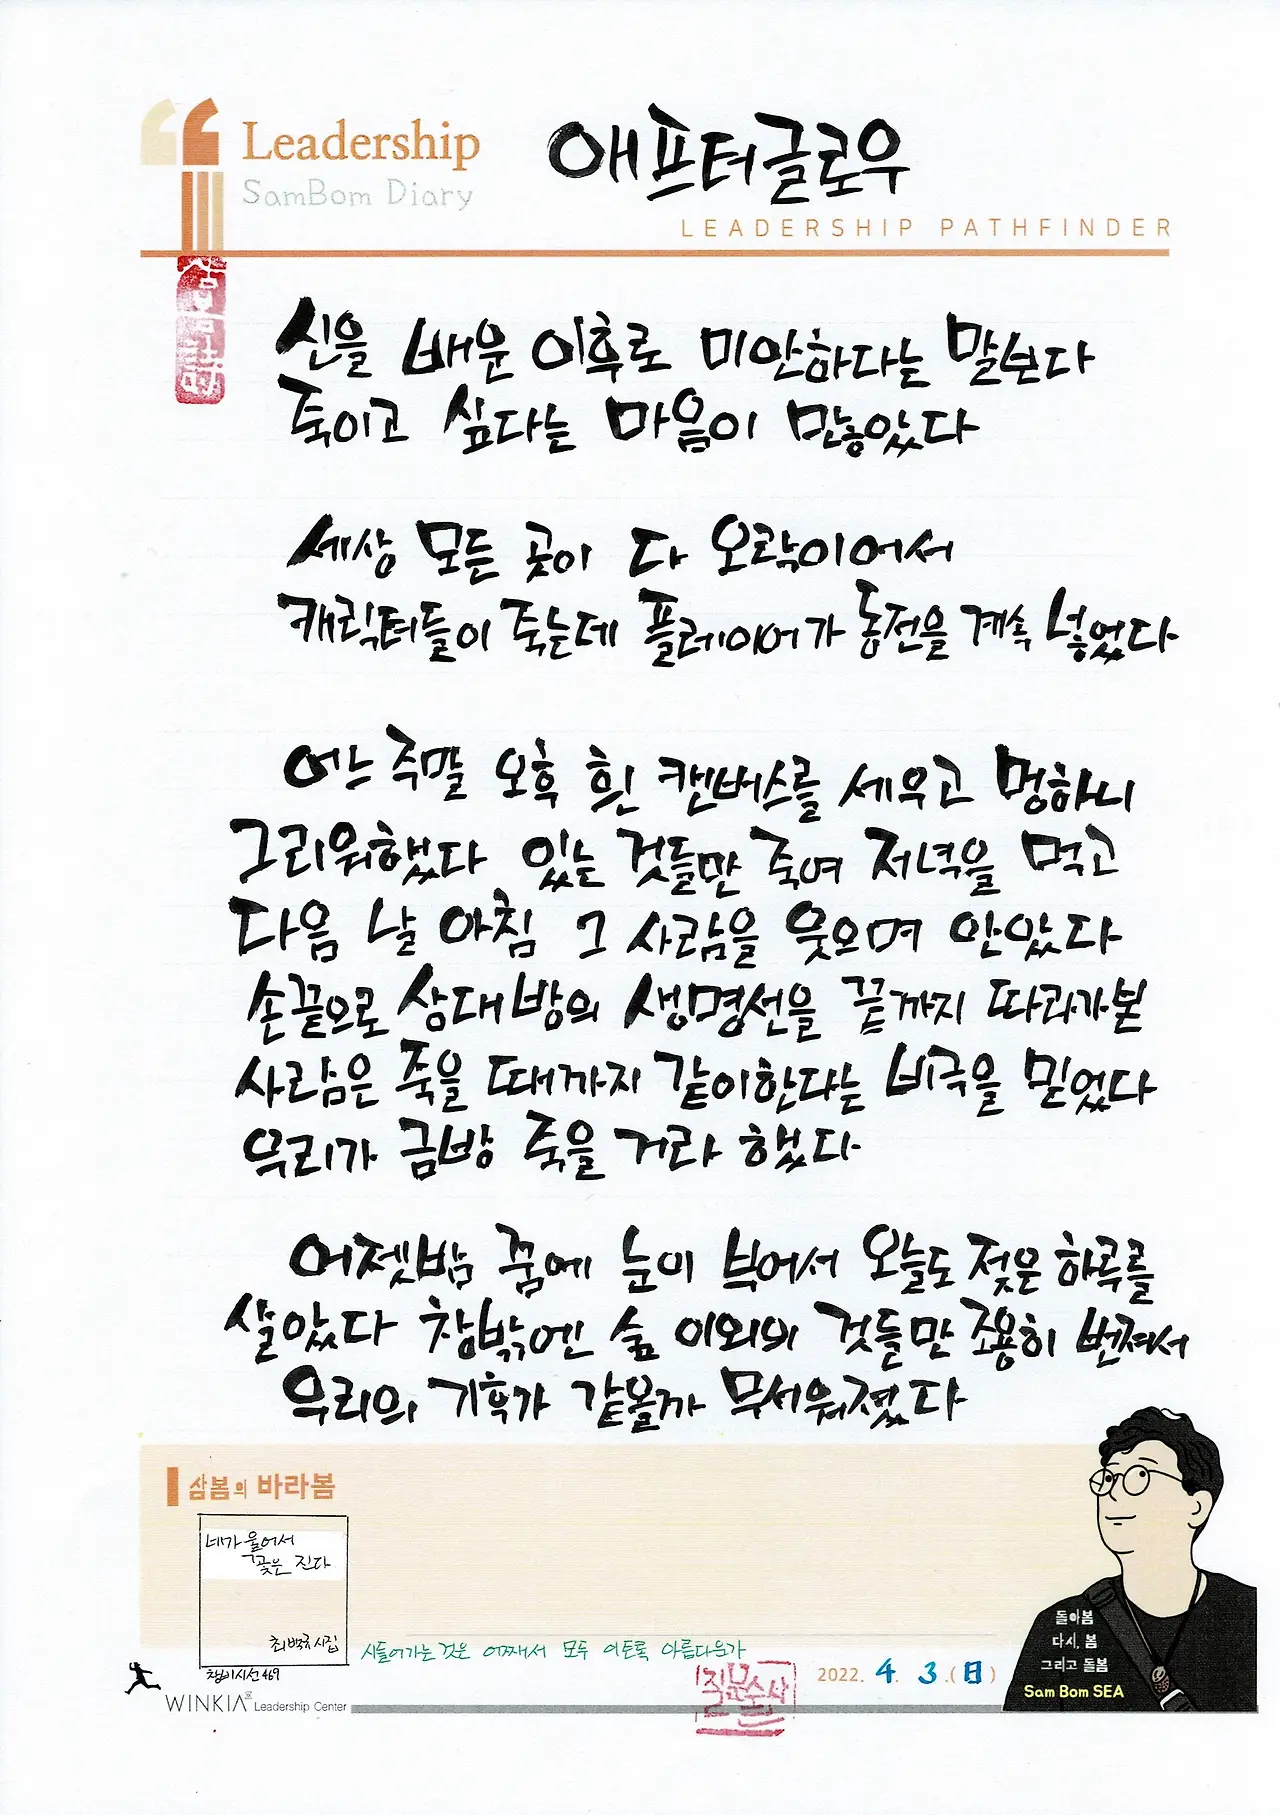 Leadership
SamBom Diary
애프터글로우
LEADERSHIP PATHFINDER
신을 배운 이후로 미안하다는 말보다
죽이고 싶다는 마음이 많았다
세상 모든 곳이 다 오락이어서
캐릭터들이 죽는데 플레이어가 동전을 계속 넣었다
어느 주말 오후 흰 캔버스를 세우고 멍하니
그리워했다 있는 것들만 죽여 저녁을 먹고
다음 날 아침 그 사람을 웃으며 안았다
손끝으로 상대방의 생명선을 끝까지 따라가본
사람은 죽을 때까지 같이한다는 비극을 믿었다
우리가 금방 죽을 거라 했다
어젯밤 꿈에 눈이 부어서 오늘도 젖은 하루를
살았다 창밖엔 숲 이외의 것들만 조용히 번져서
우리의 기후가 같을까 무서워졌다
삼봄의 바라봄
네가 울어서
꽃은 진다
최백규 시집
창비시선 469
시들어가는 것은 어째서 모두 이토록 아름다운가
2022. 4. 3.(日)
WINKIA Leadership Center
돌아봄
다시, 봄
그리고 돌봄
Sam Bom SEA